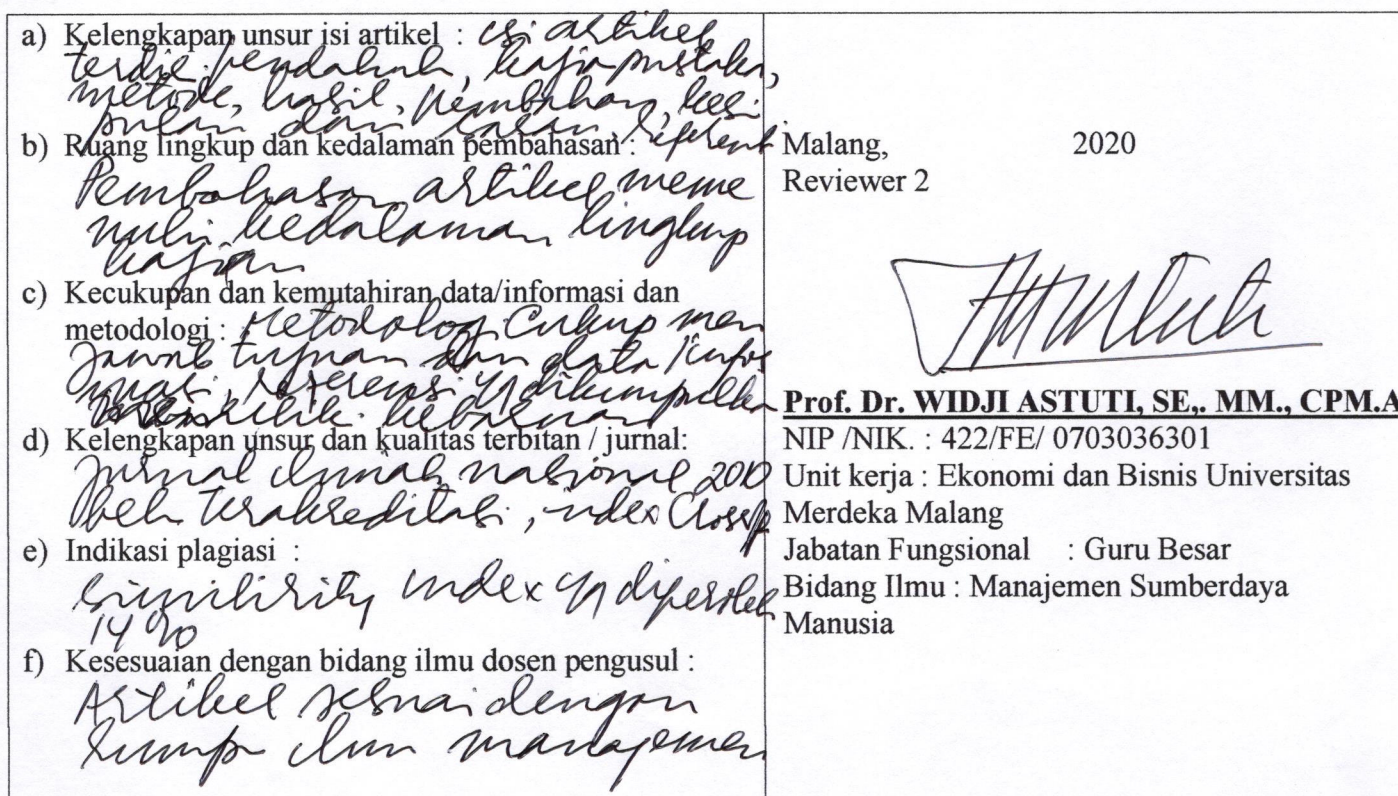 a) Kelengkapan unsur isi artikel : isi artikel
terdiri pendahulu, kajian pustaka,
metode, hasil, pembahasan, kesi
pulan dan saran referensi
b) Ruang lingkup dan kedalaman pembahasan :
Pembahasan artikel meme
nuhi kedalaman lingkup
kajian
c) Kecukupan dan kemutahiran data/informasi dan
metodologi : Metodologi Cukup men
jawab tujuan dan data infor
masi, referensi yg dikumpulkan
kebaruan
d) Kelengkapan unsur dan kualitas terbitan / jurnal:
Jurnal ilmiah nasional
terakreditasi, index
e) Indikasi plagiasi :
similirity index yg diperoleh
14 %
f) Kesesuaian dengan bidang ilmu dosen pengusul :
Artikel sesuai dengan
rumpu ilmu manajemen
Malang, 2020
Reviewer 2
Prof. Dr. WIDJI ASTUTI, SE,. MM., CPM.A
NIP /NIK. : 422/FE/ 0703036301
Unit kerja : Ekonomi dan Bisnis Universitas
Merdeka Malang
Jabatan Fungsional : Guru Besar
Bidang Ilmu : Manajemen Sumberdaya
Manusia